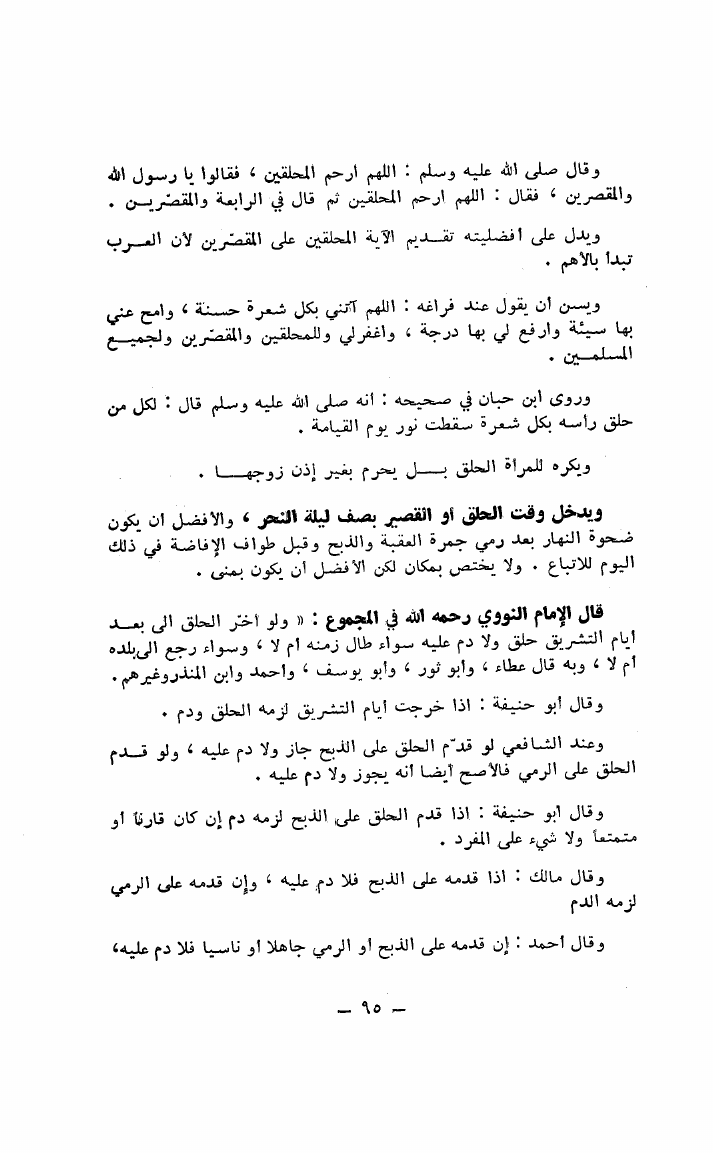 وقال صلى الله عليه وسلم : اللهم ارحم المحلقين ، فقالوا يا رسول الله
والمقصرين ، فقال : اللهم ارحم المحلقين ثم قال في الرابعة والمقصّريـن .
ويدل على أفضليته تقـديم الآية المحلقين على المقصّرين لأن العـرب
تبدأ بالأهم .
ويسـن أن يقول عند فراغه : اللهم آتني بكل شعرة حسنة ، وامح عني
بها سيئة وارفع لي بها درجة ، واغفرلي وللمحلقين والمقصّرين ولجميـع
المسلمـين .
وروى ابن حبان في صحيحه : أنه صلى الله عليه وسلم قال : لكل من
حلق رأسه بكل شعرة سقطت نور يوم القيامة .
ويكره للمرأة الحلق بــل يحرم بغير إذن زوجهــا .
ويدخل وقت الحلق أو القصير بصف ليلة النحر ، والأفضل أن يكون
ضحوة النهار بعد رمي جمرة العقبة والذبح وقبل طواف الإفاضة في ذلك
اليوم للاتباع . ولا يختص بمكان لكن الأفضل أن يكون بمنى .
قال الإمام النووي رحمه الله في المجموع : « ولو أخّر الحلق الى بعـد
أيام التشريق حلق ولا دم عليه سواء طال زمنه أم لا ، وسواء رجع الى بلده
أم لا ، وبه قال عطاء ، وأبو ثور ، وأبو يوسف ، وأحمد وابن المنذر وغيرهم .
وقال أبو حنيفة : اذا خرجت أيام التشريق لزمه الحلق ودم .
وعند الشافعي لو قدّم الحلق على الذبح جاز ولا دم عليه ، ولو قـدم
الحلق على الرمي فالأصح أيضا أنه يجوز ولا دم عليه .
وقال أبو حنيفة : اذا قدم الحلق على الذبح لزمه دم إن كان قارناً أو
متمتعاً ولا شيء على المفرد .
وقال مالك : اذا قدمه على الذبح فلا دم عليه ، وإن قدمه على الرمي
لزمه الدم
وقال أحمد : إن قدمه على الذبح أو الرمي جاهلا أو ناسيا فلا دم عليه،
— ٩٥ —